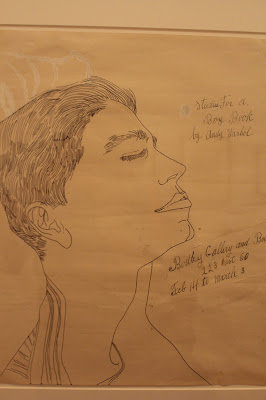 Studies for a
Boy Book
by Andy Warhol
Bodley Gallery and Bo
223 East 60
Feb 14 to March 3